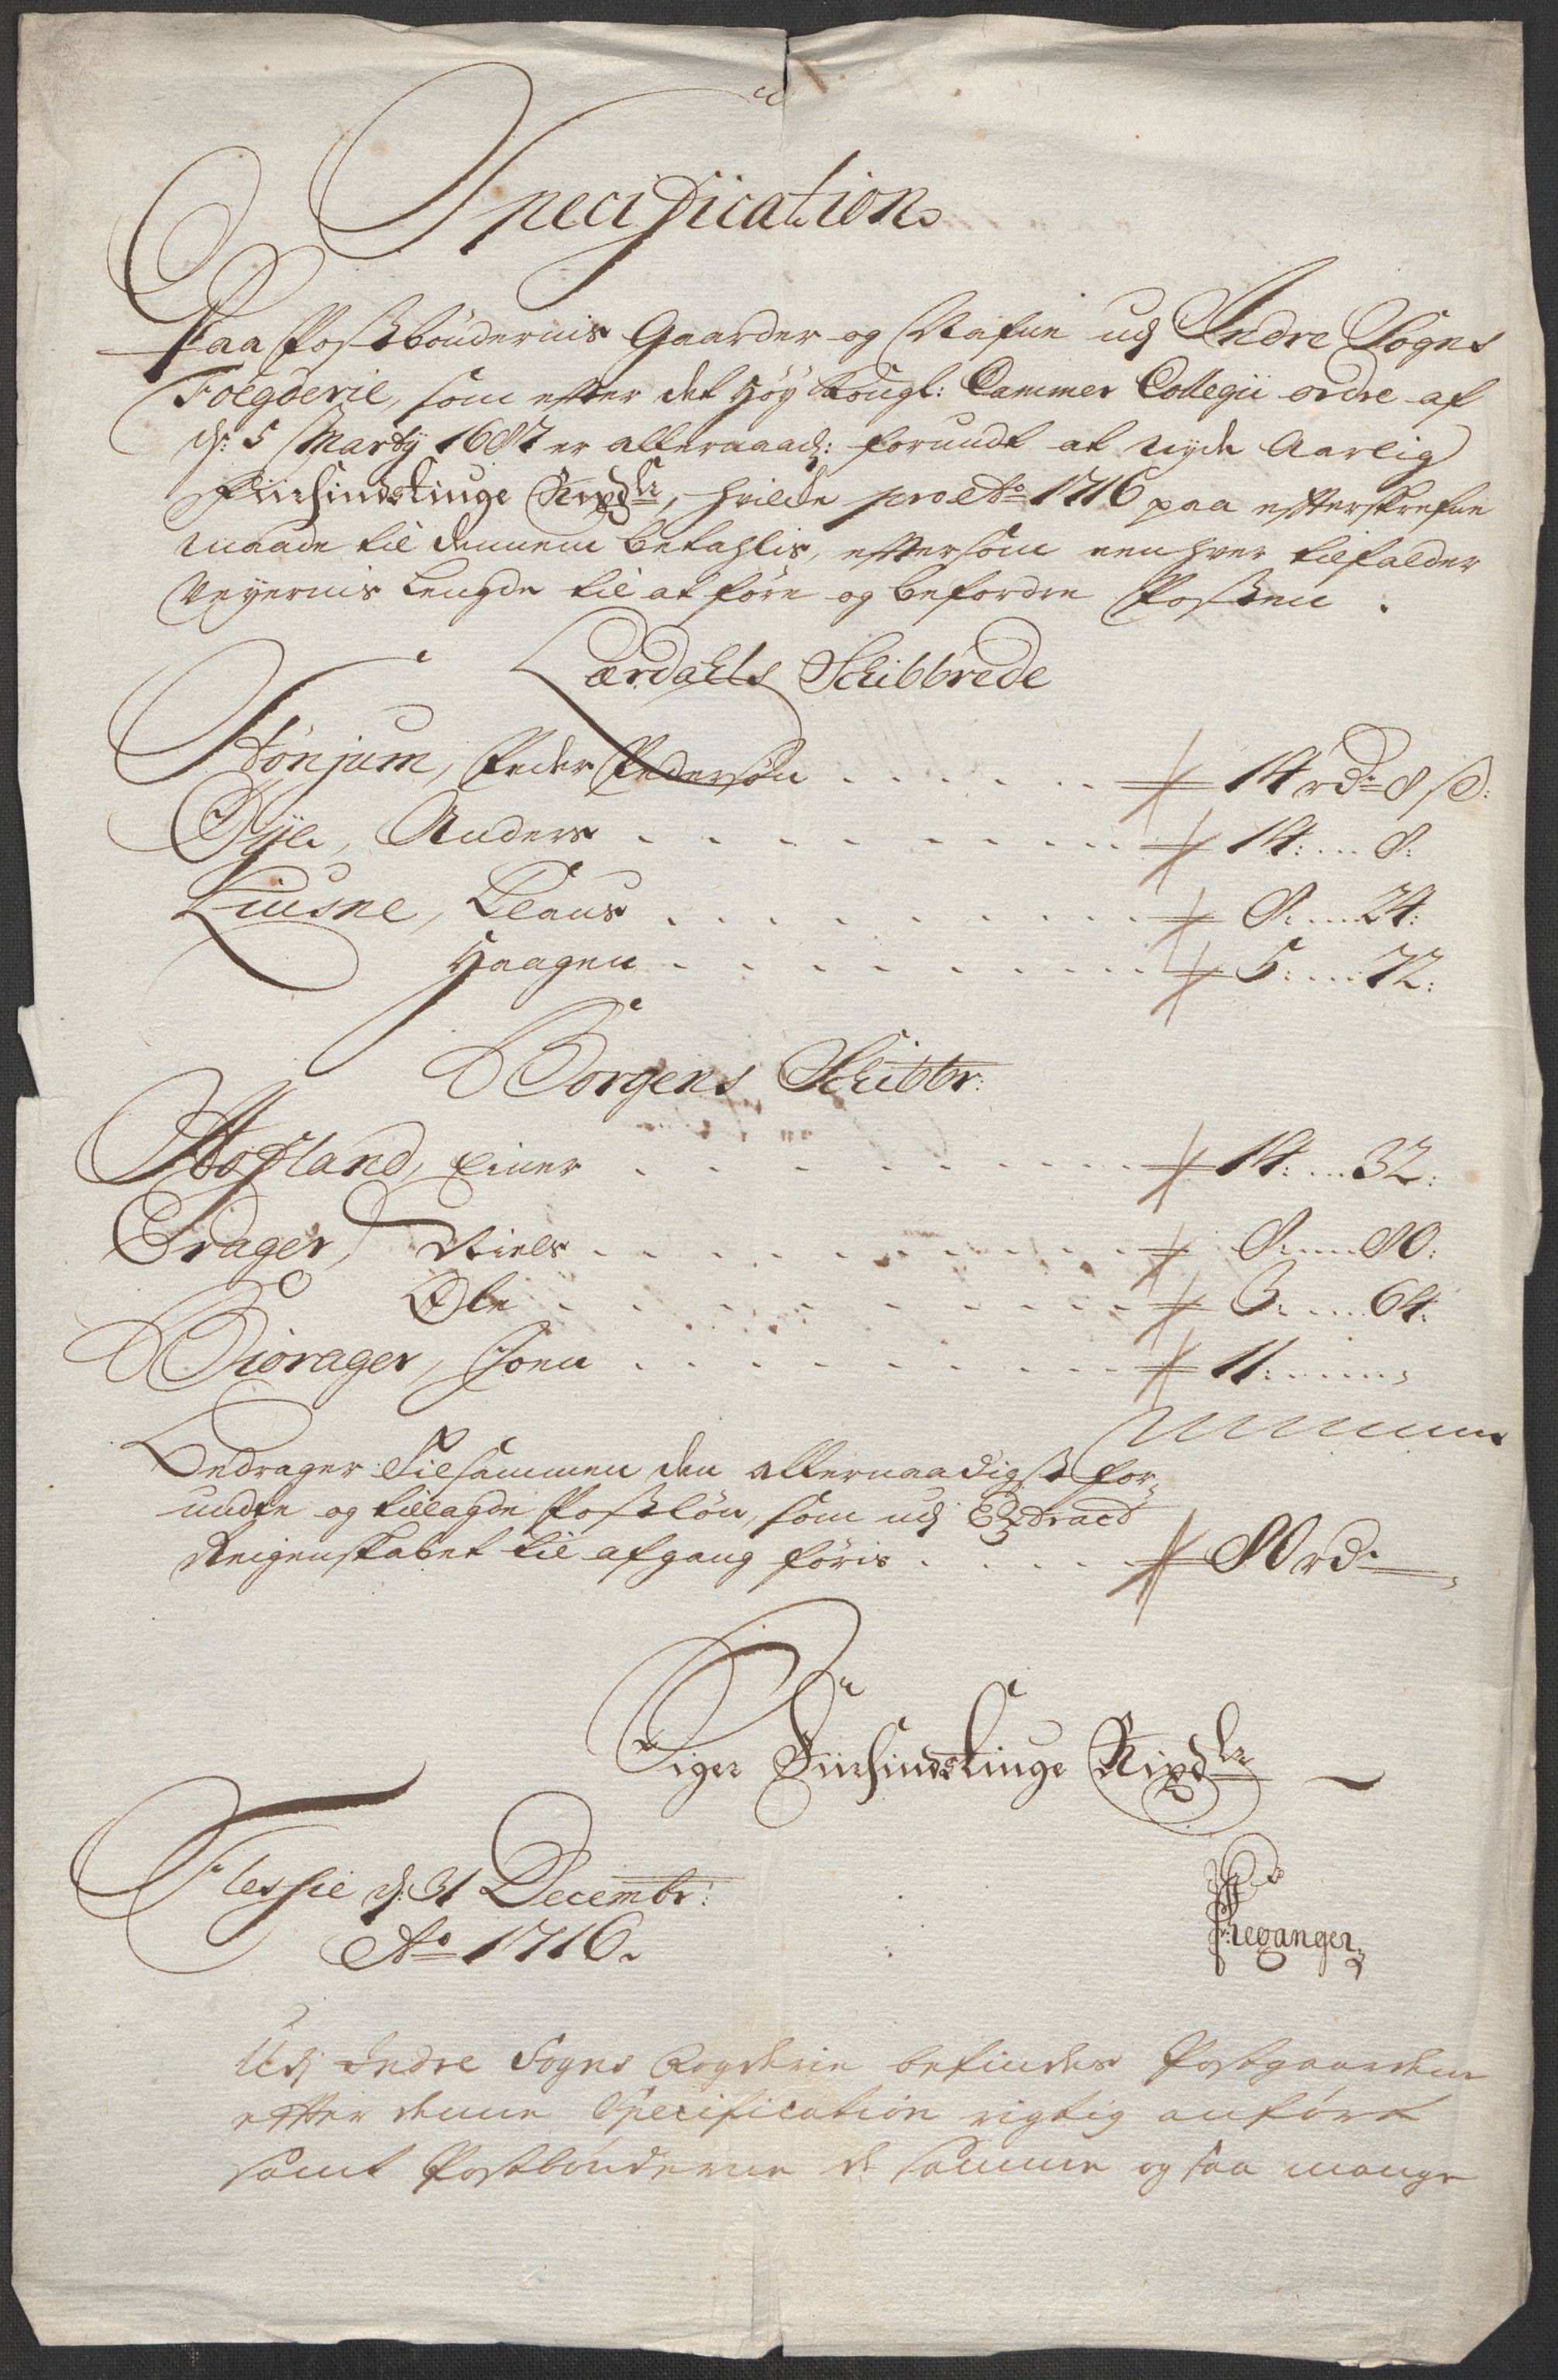 Specification
Paa Postbøndernis Gaarder og Nafne udj Indre Sogns
Foegderie, som efter det Høy Kongl: Cammer Collegii ordre af
d: 5 Martij 1687 er allernaad: forundt at nyde Aarlig
Fiirsindstiuge Rixdlr, hvilche pro Ao 1716 paa efterskrefne
maade til dennem betahlis, eftersom eenhver tilfalder
Veyernis Lengde til at føre og befordre Posten.
Lærdahls Schibbrede
Tønjum, Peder Pedersøn 14 rd 8 s:
Æye, Anders 14: 8:
Liusne, Claus 8: 24:
Haagen 5: 72:
Borgens Schibbr:
Hofland, Einer 14: 32:
Erager, Niels 8: 80:
Ole 3: 64:
Biorager, Joen 11:
Bedrager Tilsammen den allernaadigst for,,
undte og tillagde Postløn, som udj Extraord
Reigenskabet til afgang føris 80 rd
Siger Fiirsindstiuge Rixdlr
Flessie d: 31 Decembr:
Ao 1716.
Udj Indre Sogns Fogderie befindes Postgaardene
efter denne Specification rigtig anført
samt Postbønderne de samme og saa mange